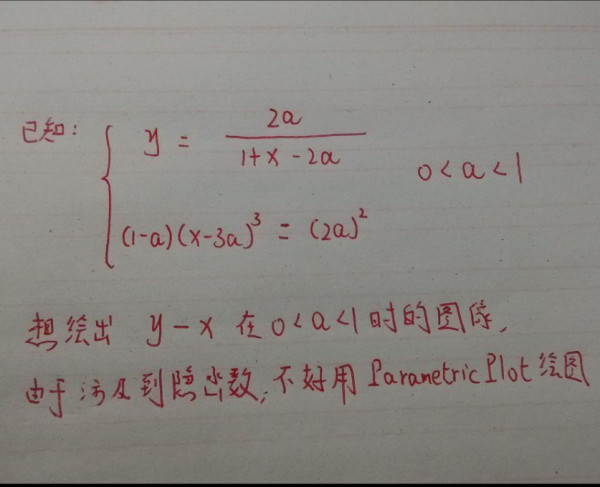 已知: { y = 2a / (1+x-2a)
0<a<1
(1-a)(x-3a)³ = (2a)²
想绘出 y-x 在 0<a<1 时的图像,
由于涉及到隐函数, 不好用 ParametricPlot 绘图